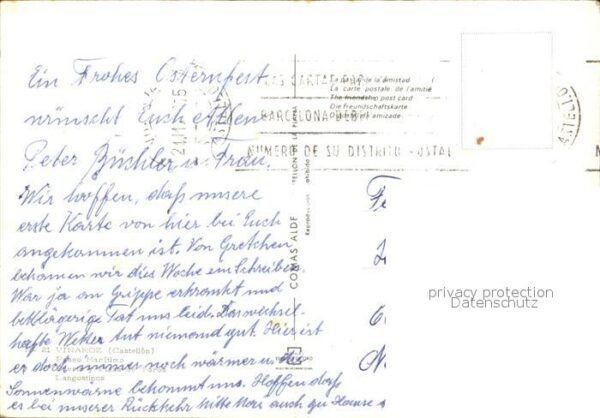 Ein Frohes Osternfest
wünscht Euch Allen
Peter Büchler u Frau.
Wir hoffen, daß unsere
erste Karte von hier bei Euch
angekommen ist. Von Gretchen
bekamen wir dies Woche ein Schreiben
War ja an Grippe erkrankt und
bettlägerige Tat uns leid. Das wechsel-
hafte Wetter tut niemand gut. Hier ist
er doch immer noch wärmer u. die
Sonnenwärme bekommt uns. Hoffen daß
es bei unserer Rückkehr Mitte Mai auch zu Hause
La carta de la amistad
La carte postale de l'amitié
The friendship post card
Die freundschaftskarte
BARCELONA
NUMERO DE SU DISTRITO POSTAL
CASTELLO
COMAS ALDE
21 VINAROZ (Castellón)
Paseo Marítimo
Langostinos
privacy protection
Datenschutz